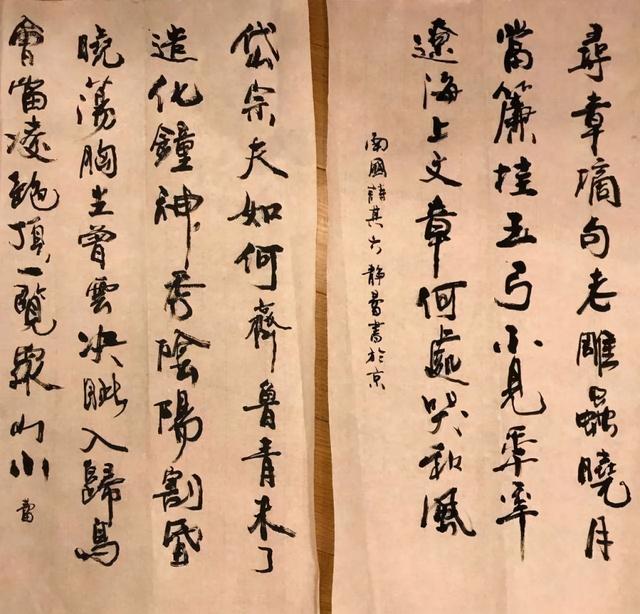 尋章摘句老雕蟲曉月
當簾挂玉弓不見年年
遼海上文章何處哭秋風
南國詩其六 靜書於京
岱宗夫如何齊魯青未了
造化鐘神秀陰陽割昏
曉蕩胸生曾雲決眥入歸鳥
會當凌絕頂一覽眾山小